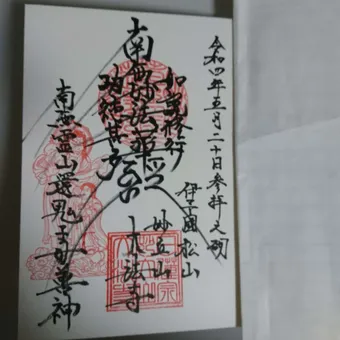 令和四年五月二十日参拝之砌
伊予國松山
妙立山
法寺
如説修行
功徳甚多
南無妙法蓮華経
南無霊山還鬼子母善神